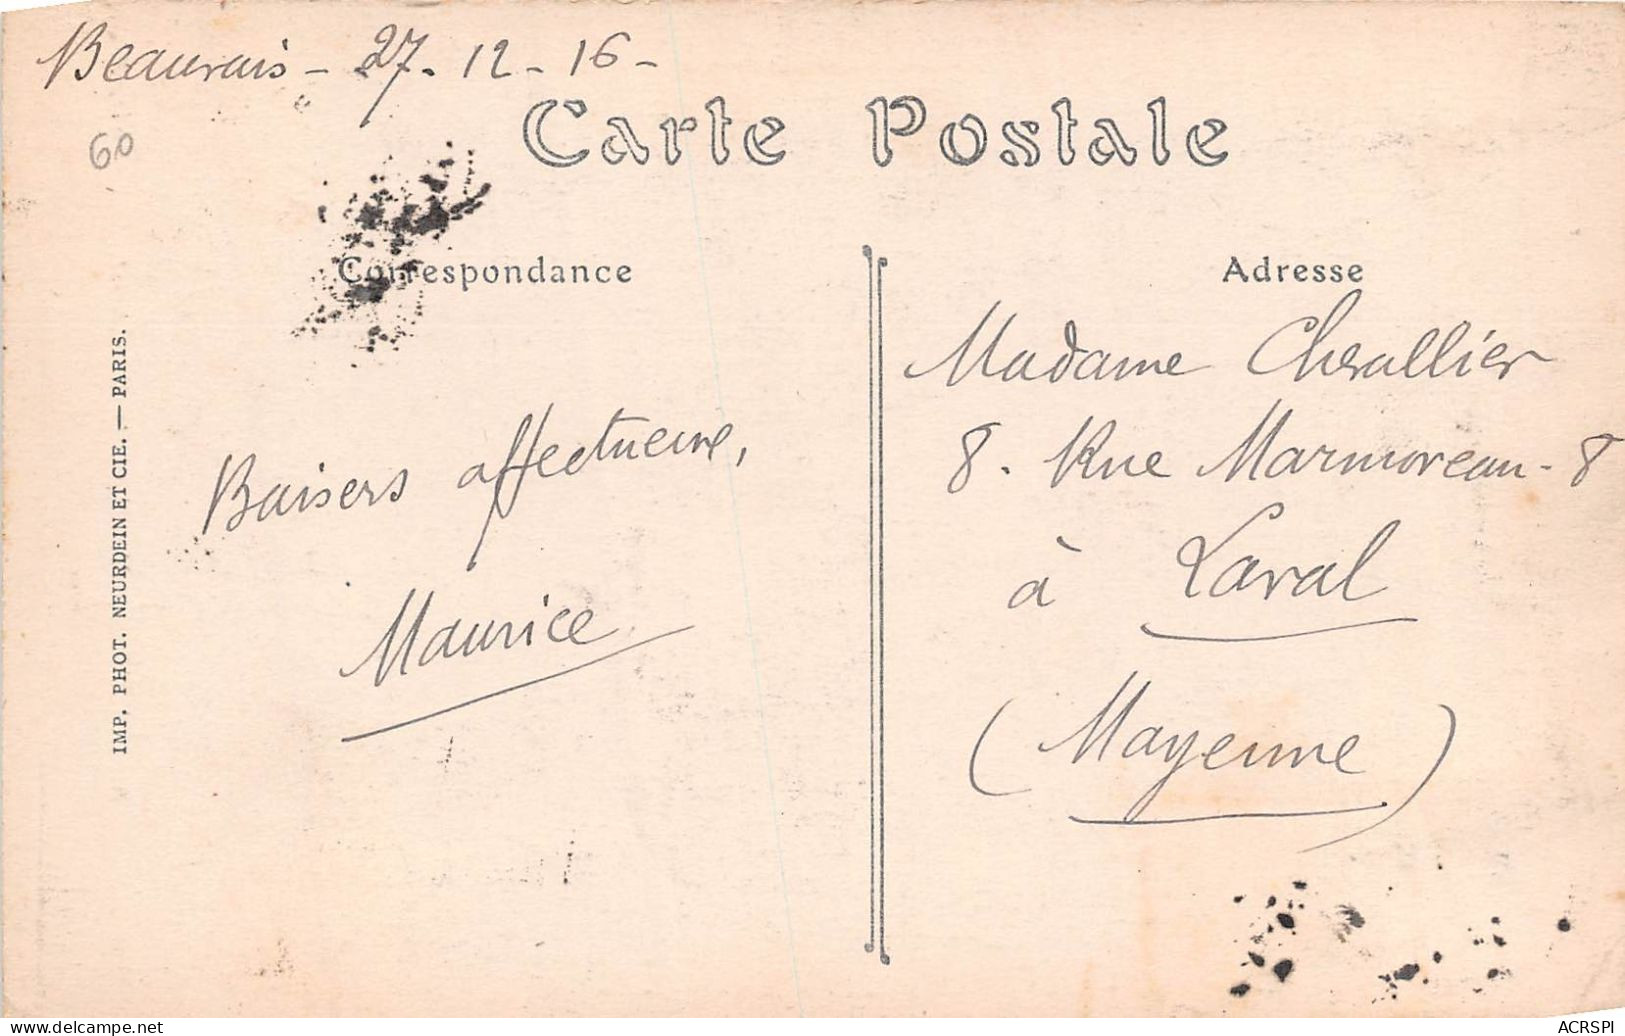 Beauvais - 27. 12 - 16 -
60
Carte Postale
Correspondance
Adresse
IMP. PHOT. NEURDEIN ET CIE. — PARIS.
Baisers affectueux,
Maurice
Madame Chevallier
8. Rue Marmoreau - 8
à Laval
(Mayenne)
www.delcampe.net
ACRSPI